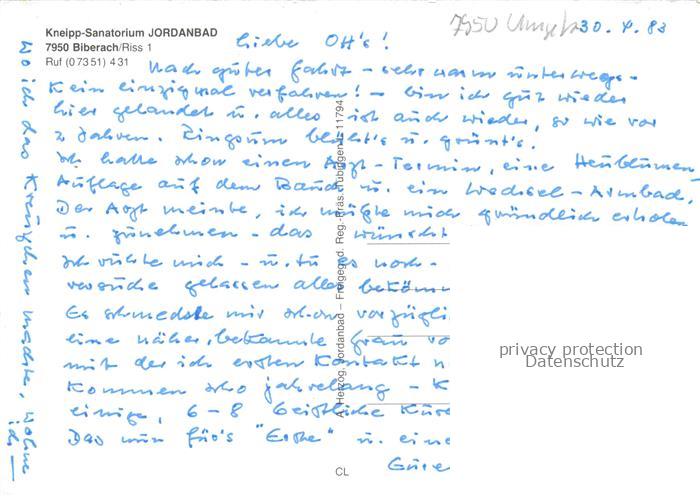 Kneipp-Sanatorium JORDANBAD
7950 Biberach/Riss 1
Ruf (0 73 51) 4 31
7950 30. 4. 83
Liebe Ott's!
Nach guter Fahrt - sehr warm unterwegs -
Kein einzigmal verfahren! - bin ich gut wieder
hier gelandet u. alles ist auch wieder, so wie vor
2 Jahren. Ringsum blüht's u. grünt's.
Ich hatte schon einen Arzt-Termin, eine Heublumen
Auflage auf dem Bauch u. ein Wechsel-Armbad,
Der Arzt meinte, ich müßte mich gründlich erholen
u. zunehmen - das wünscht
ich mich - u. tu es noch -
versuche gelassen alles
Es schmeckte mir schon vorzügli
eine näher bekannte Frau vo
mit der ich ersten Kontakt
Kommen scho jahrelang - K
einige, 6-8 Geistliche Kure
Das nun für's "Erste" u. eine
Gure
Wo ich das Kreuzchen machte, wohne
ich
A. Herzog, Jordanbad – Freigegeb. Reg.-Präs. Tübingen 11794
CL
privacy protection
Datenschutz